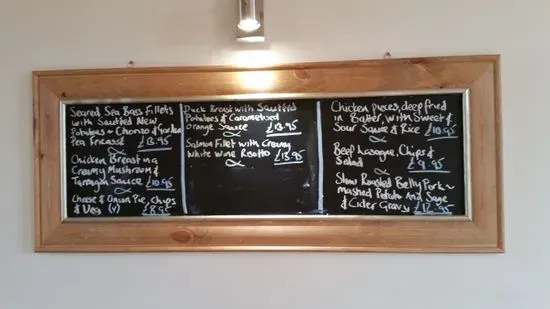 Seared Sea Bass Fillets
with Sautéed New
Potatoes ~ Chorizo & Garden
Pea Fricassé £13.95
Chicken Breast in a
Creamy Mushroom &
Tarragon Sauce £10.95
Cheese & Onion Pie, Chips
& Veg (v) £8.95
Duck Breast with Sautéed
Potatoes & Caramelised
Orange Sauce £13.95
Salmon Fillet with Creamy
White Wine Risotto £13.95
Chicken pieces, deep fried
in Batter, with Sweet &
Sour Sauce & Rice £10.95
Beef Lasagne, Chips &
Salad £8.95
Slow Roasted Belly Pork ~
Mashed Potato And Sage
& Cider Gravy £12.95